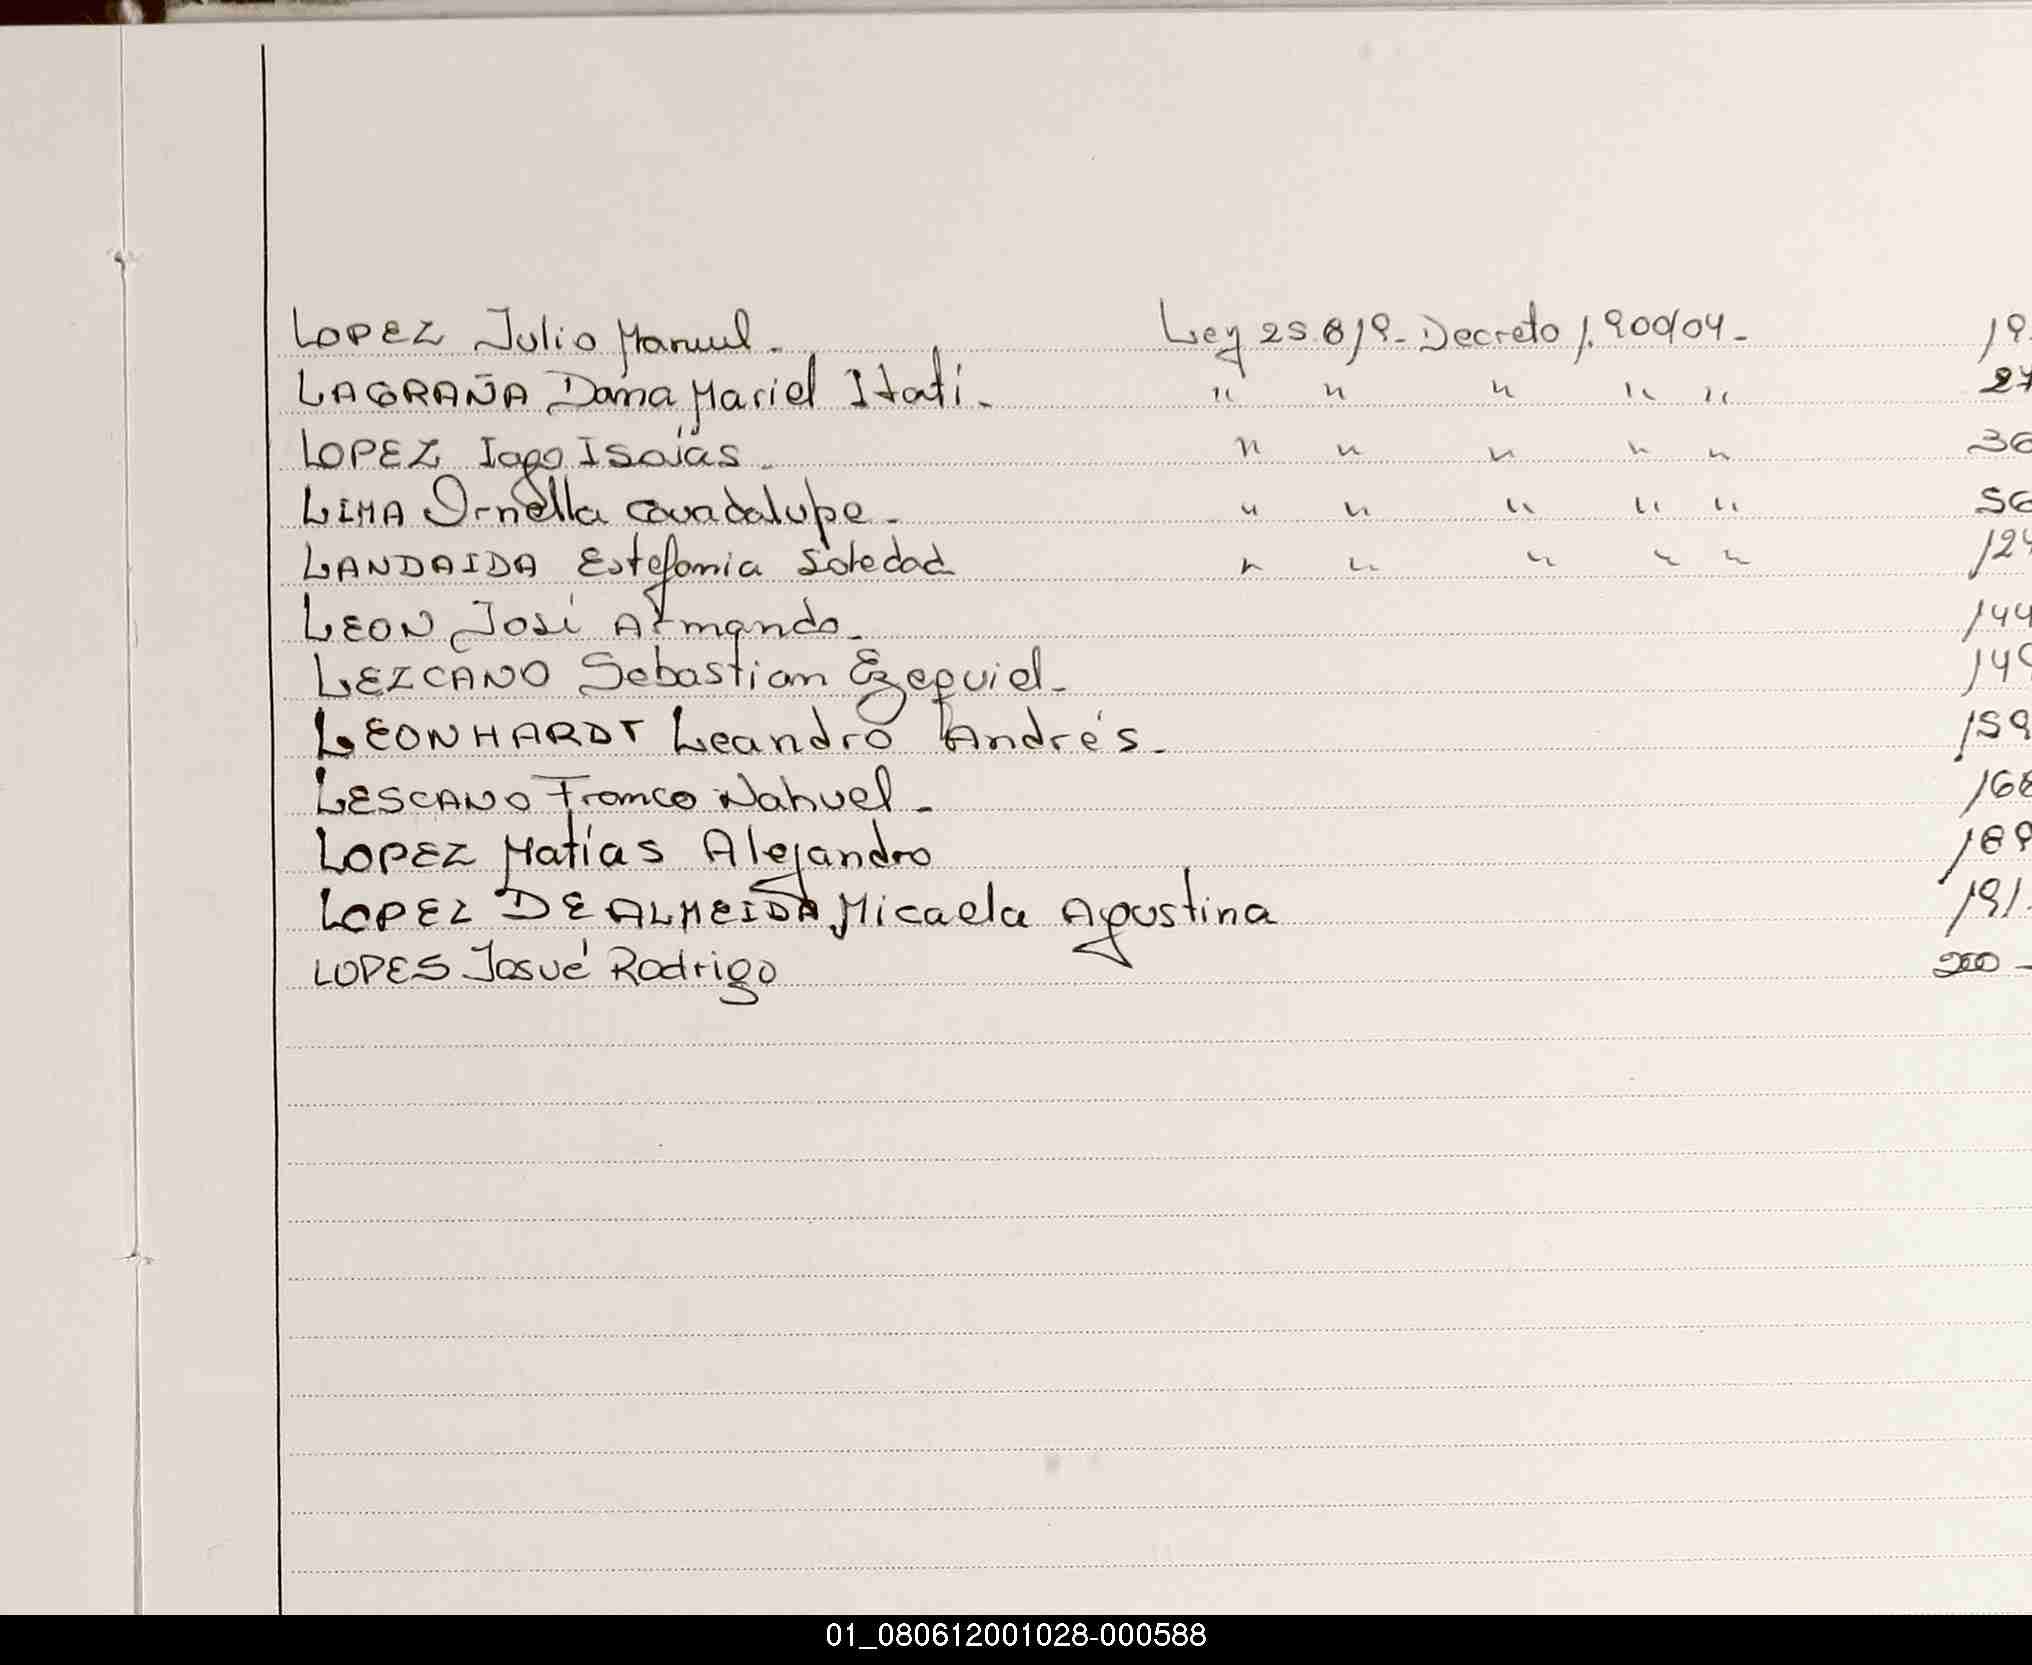 LOPEZ Julio Manuel. Ley 25.819- Decreto 1.900/04- 19.
LAGRAÑA Dama Mariel Itatí. " " " " " 27
LOPEZ Iago Isaías. " " " " " 36
LIMA Ornella Guadalupe. " " " " " 56
LANDAIDA Estefania Soledad " " " " " 124
LEON José Armando. 144
LEZCANO Sebastian Ezequiel. 149
LEONHARDT Leandro Andrés. 159
LESCANO Franco Nahuel. 168
LOPEZ Matías Alejandro 189
LOPEZ DE ALMEIDA Micaela Agustina 191.
LOPES Josué Rodrigo 200 -
01_080612001028-000588